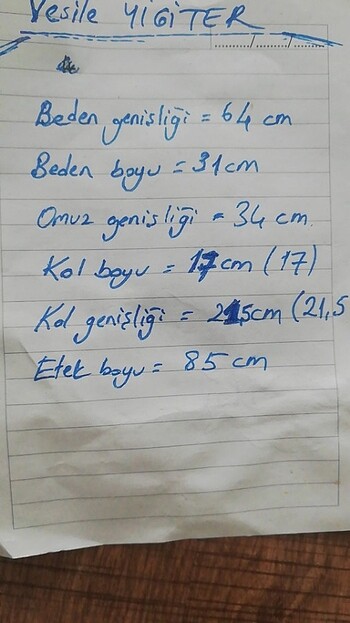 Vesile YİGİTER
Beden genişliği = 64 cm
Beden boyu = 31cm
Omuz genişliği = 34 cm.
Kol boyu = 17cm (17)
Kol genişliği = 21,5cm (21,5
Etek boyu = 85 cm